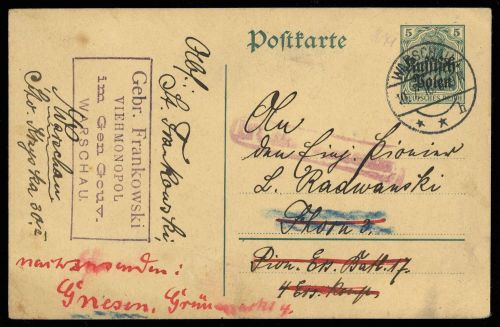 Postkarte
5
Russisch-
Polen
DEUTSCHES REICH
WARSCHAU
b
Abs.
St. Frankowski
Gebr. Frankowski
VIEHMONOPOL
im Gen Gouv.
WARSCHAU.
Warschau
An
den Einj. Pionier
L. Radwanski
Thorn 3.
Pion. Ers. Batl. 17.
4 Ers. Komp.
nachzusenden:
Gnesen, Grünmarkt 4